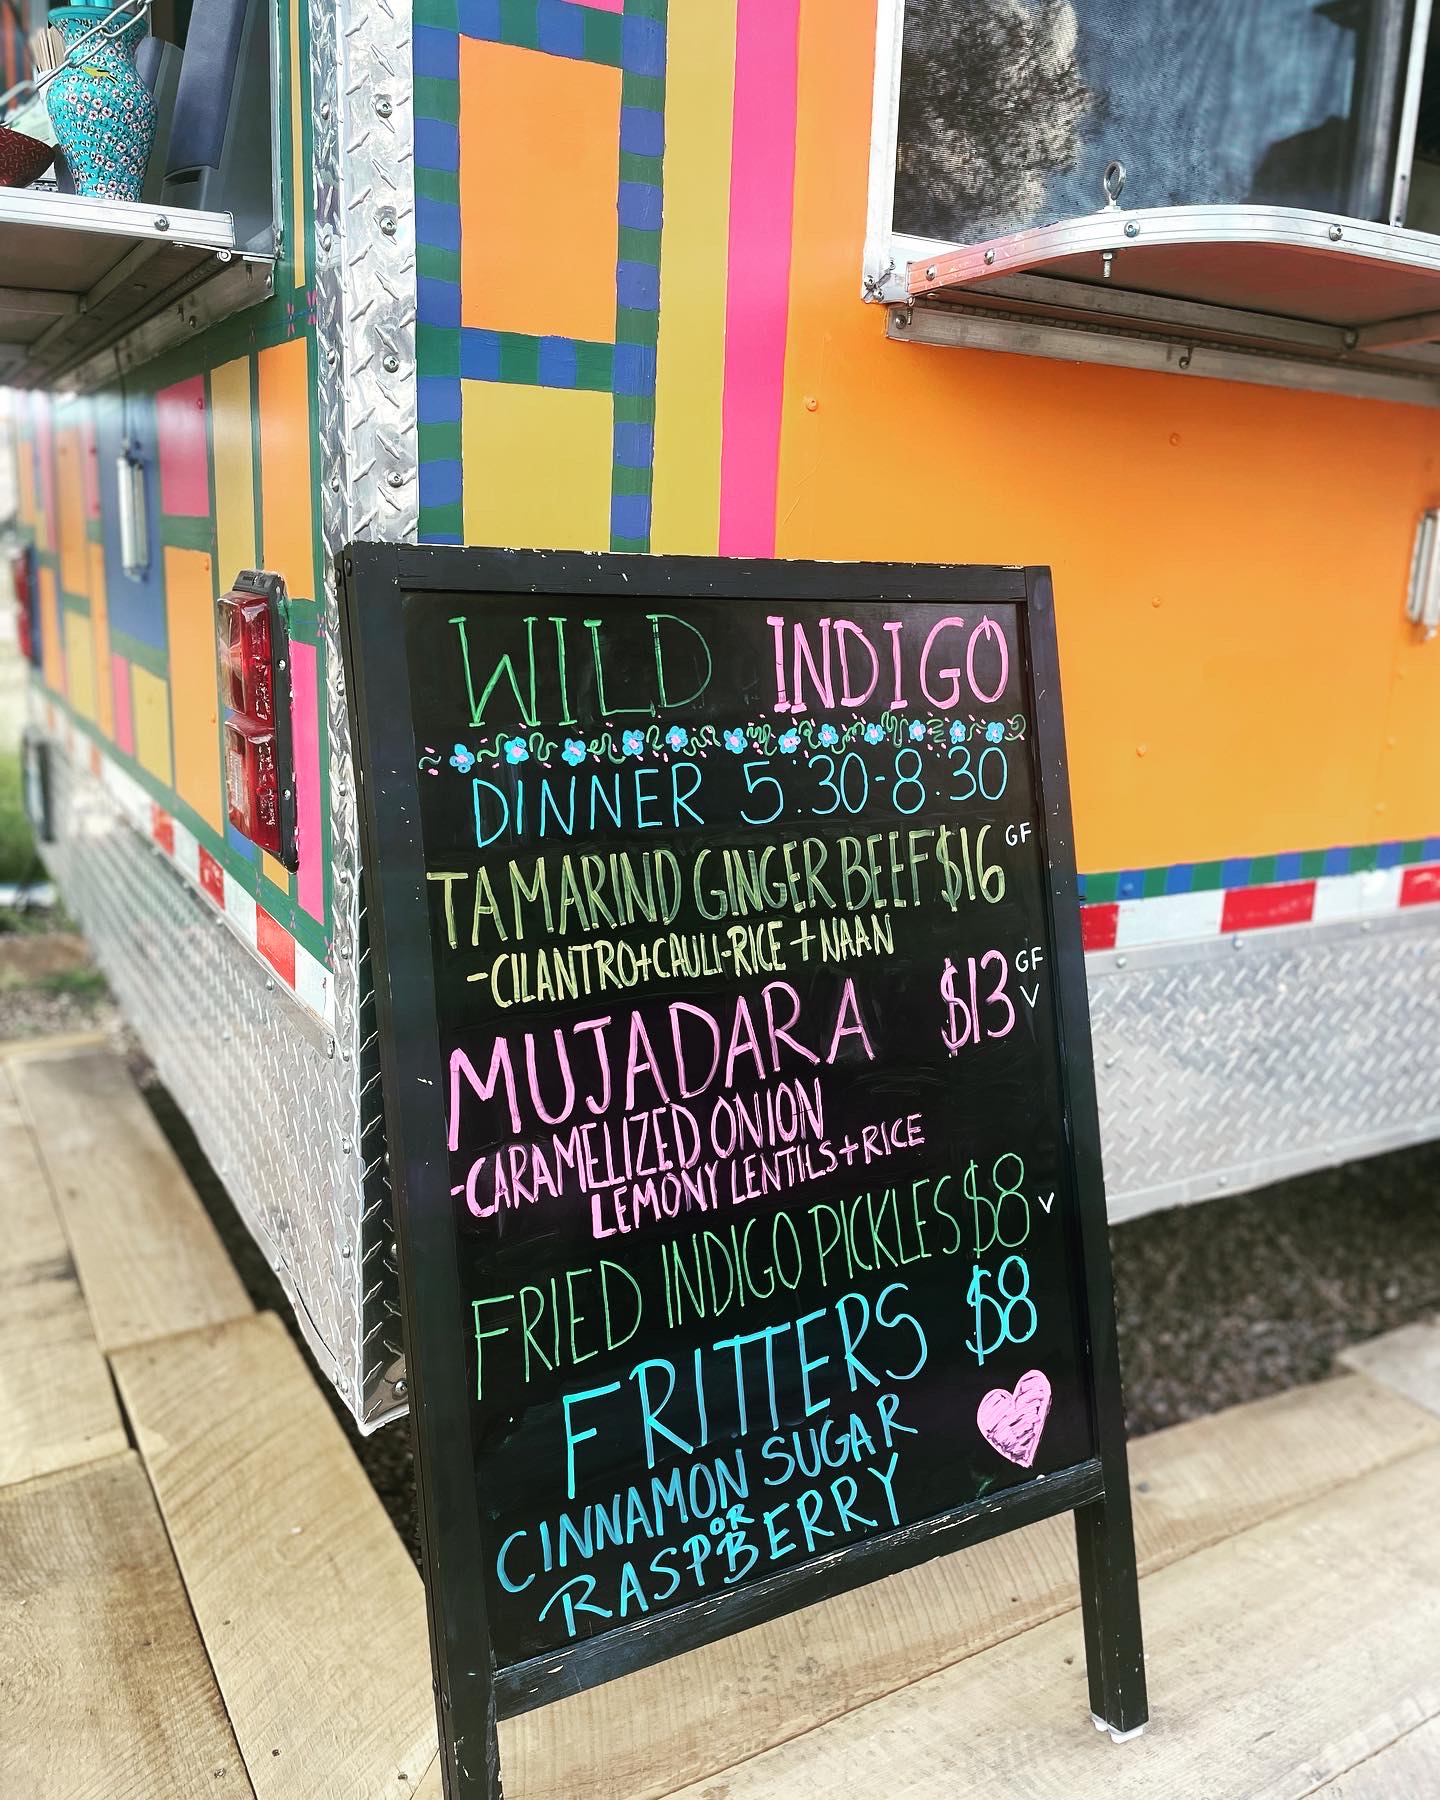 WILD INDIGO
DINNER 5:30-8:30
TAMARIND GINGER BEEF $16 GF
-CILANTRO+CAULI-RICE + NAAN
MUJADARA $13 GF V
-CARAMELIZED ONION
LEMONY LENTILS+RICE
FRIED INDIGO PICKLES $8 V
FRITTERS $8
CINNAMON SUGAR
OR
RASPBERRY